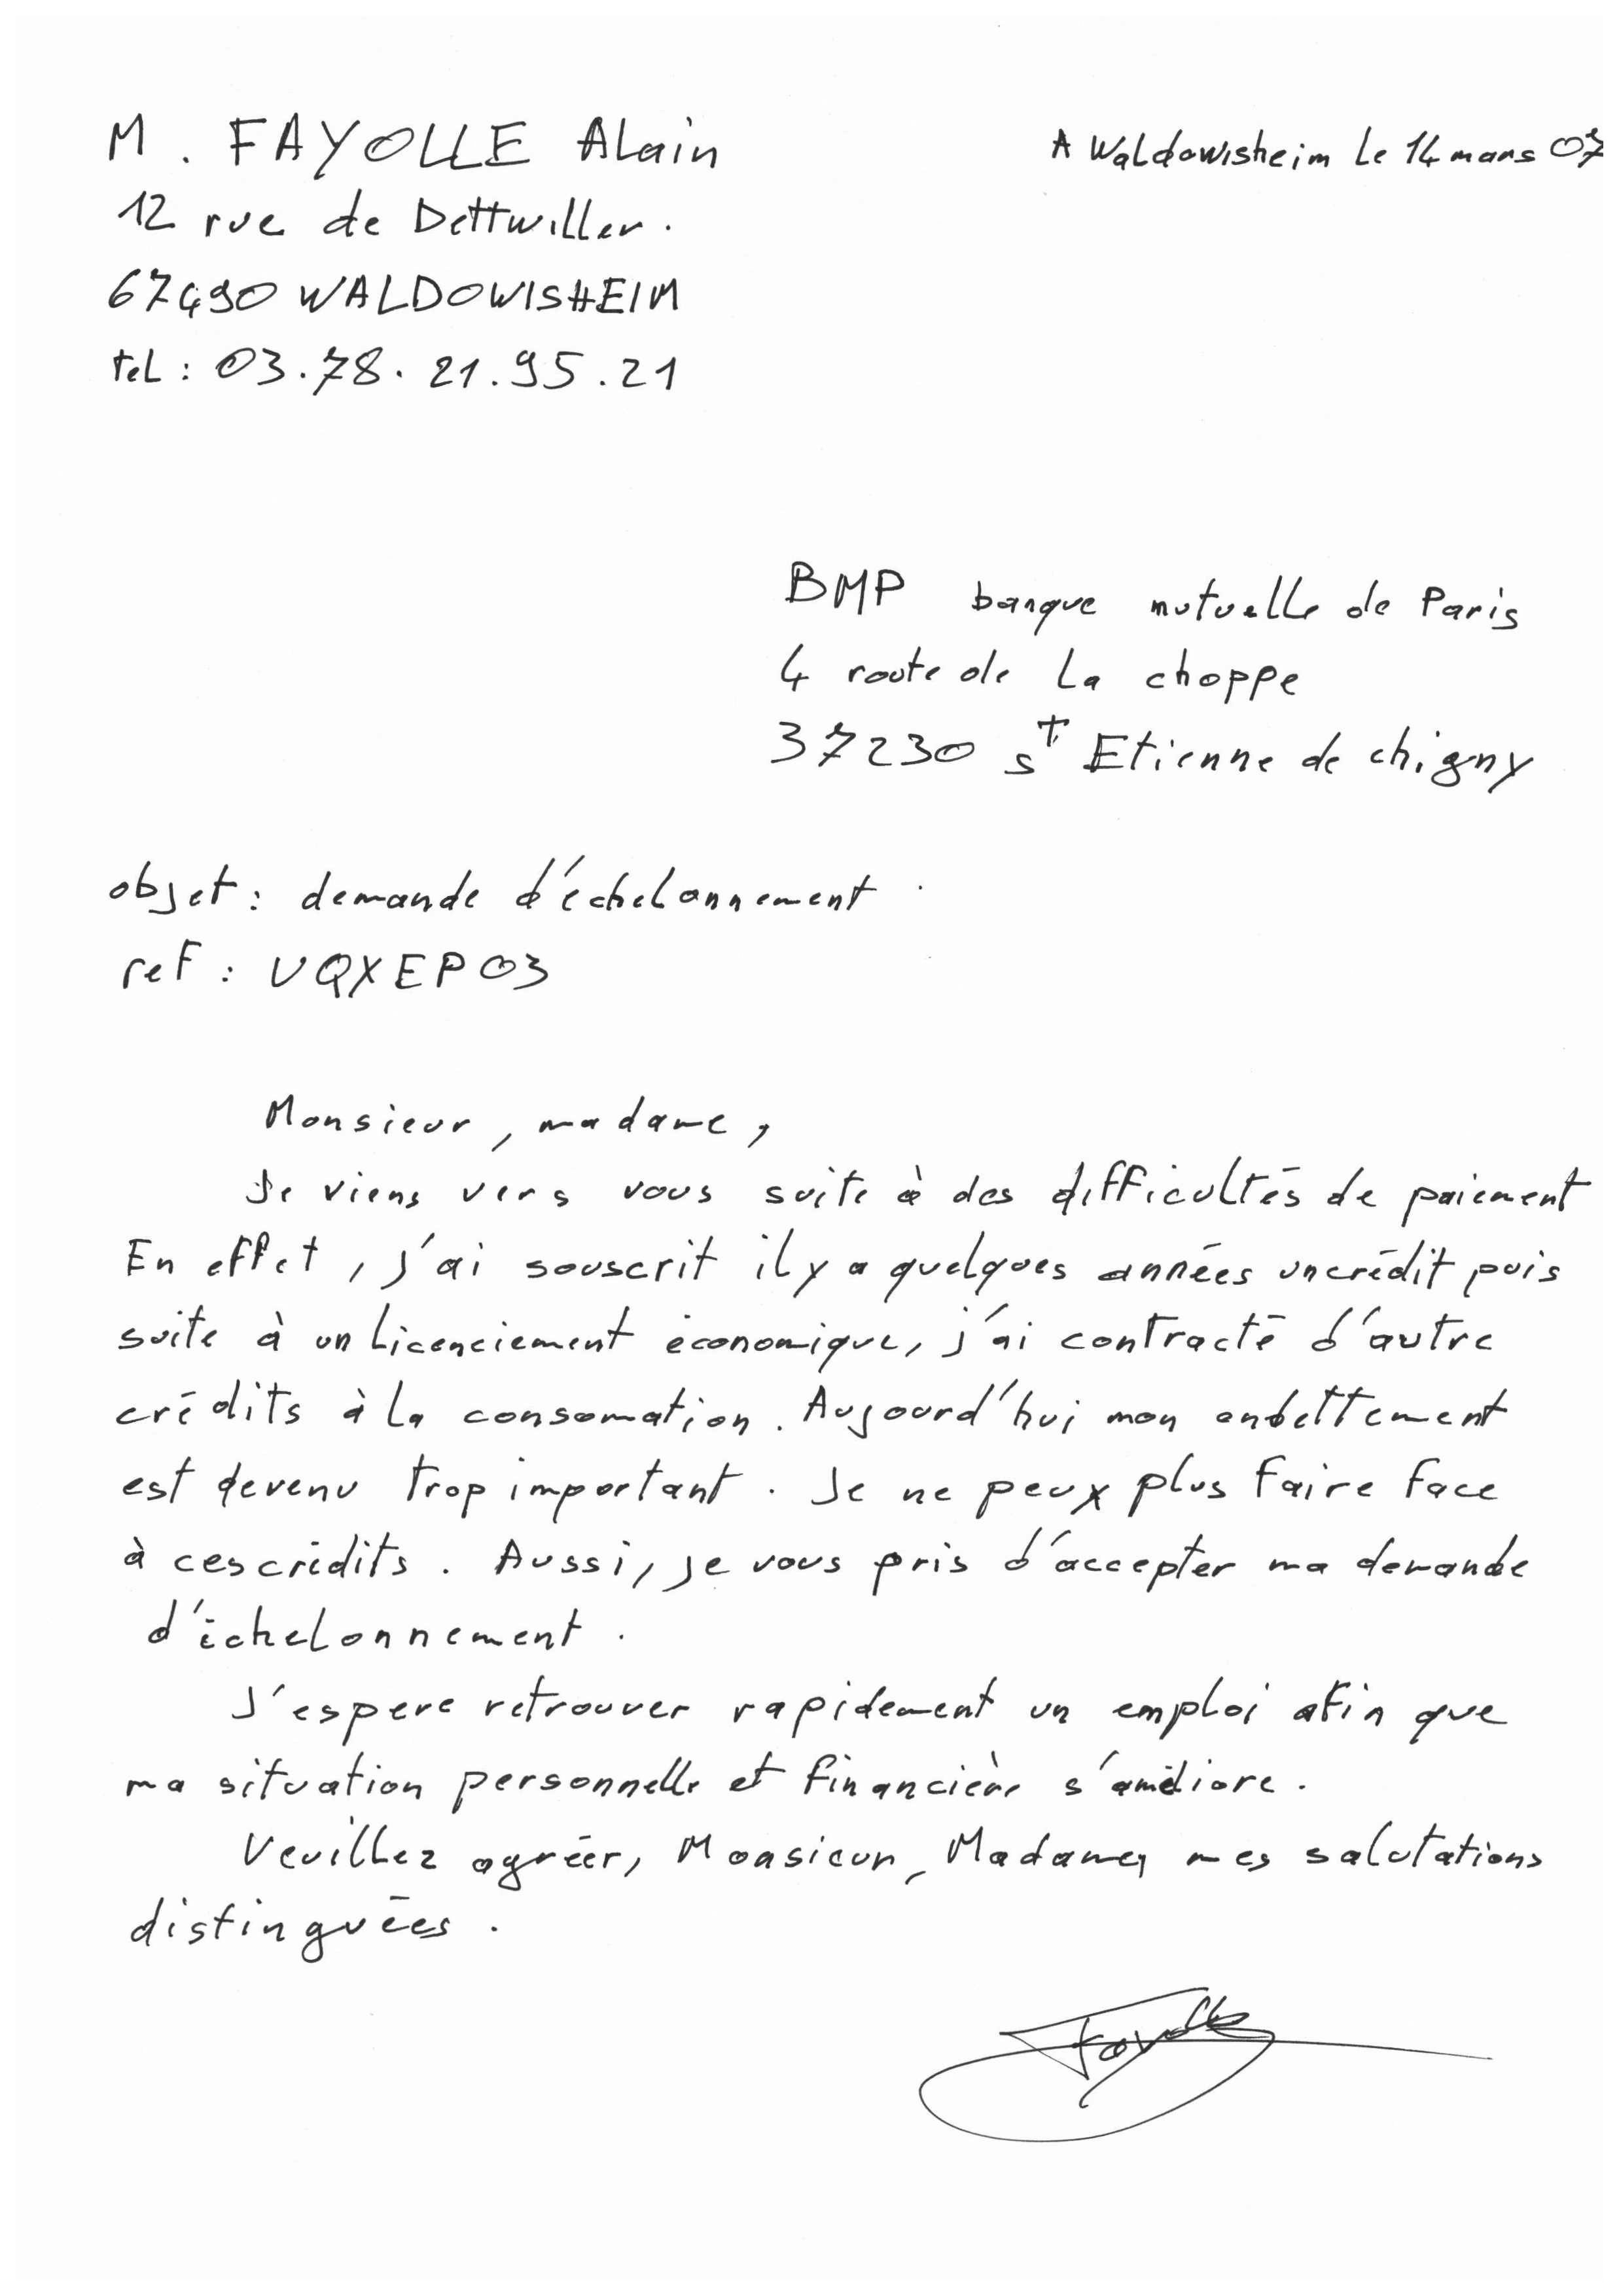 M. FAYOLLE Alain
A Waldowisheim le 14 mars 07
12 rue de Dettwiller.
67490 WALDOWISHEIM
tel : 03.78.21.95.21
BMP banque mutuelle de Paris
4 route de la choppe
37230 St Etienne de chigny
objet : demande d'échelonnement.
ref : UQXEP03
Monsieur, madame,
Je viens vers vous suite à des difficultés de paiement
En effet, j'ai souscrit il y a quelques années un crédit puis
suite à un licenciement économique, j'ai contracté d'autre
crédits à la consomation. Aujourd'hui mon endettement
est devenu trop important. Je ne peux plus faire face
à ces crédits. Aussi, je vous pris d'accepter ma demande
d'échelonnement.
J'espere retrouver rapidement un emploi afin que
ma situation personnelle et financière s'améliore.
Veuillez agréer, Monsieur, Madame, mes salutations
distinguées.
Fayolle